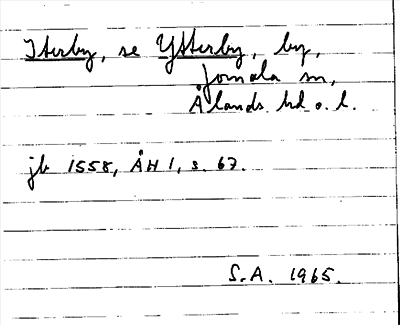 Iterby, se Ytterby, by,
Jomala sn,
Ålands hd o. l.
jb 1558, ÅH 1, s. 67.
S.A. 1965.